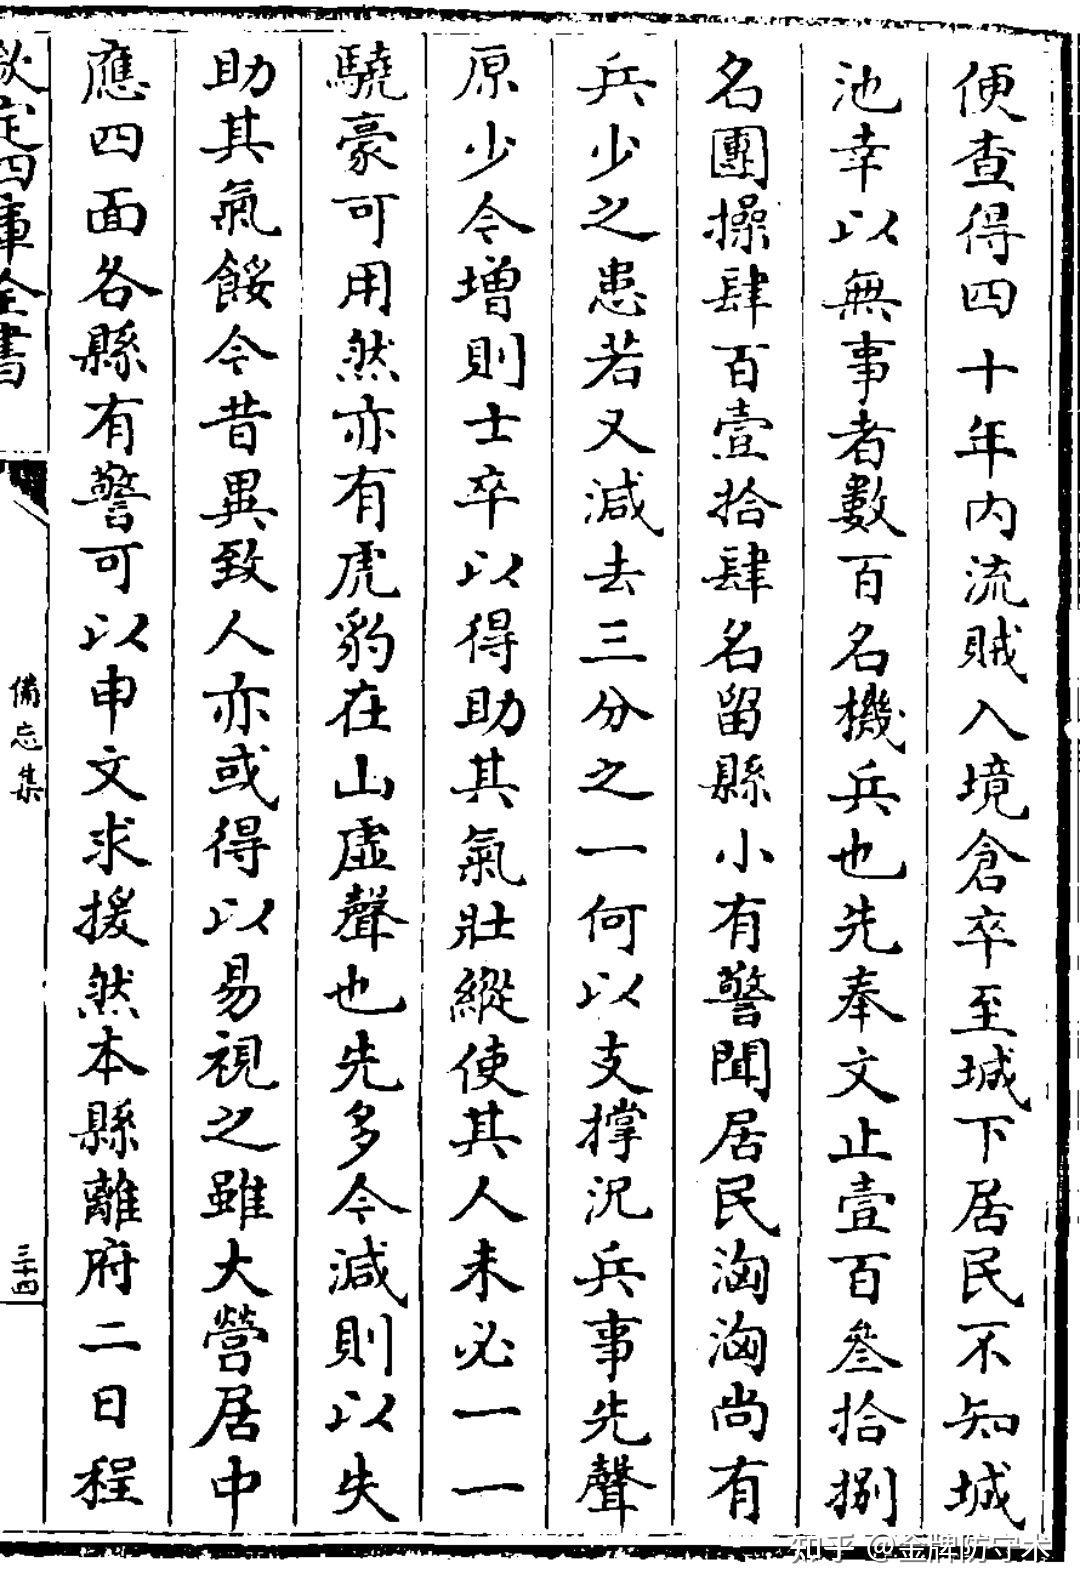 便查得四十年內流賊入境倉卒至城下居民不知城
池幸以無事者數百名機兵也先奉文止壹百叁拾捌
名團操肆百壹拾肆名留縣小有警聞居民洶洶尚有
兵少之患若又減去三分之一何以支撐況兵事先聲
原少今增則士卒以得助其氣壯縱使其人未必一一
驍豪可用然亦有虎豹在山虛聲也先多今減則以失
助其氣餒今昔異致人亦或得以易視之雖大營居中
應四面各縣有警可以申文求援然本縣離府二日程
欽定四庫全書
備忘集
三十四
知乎 @金牌防守术